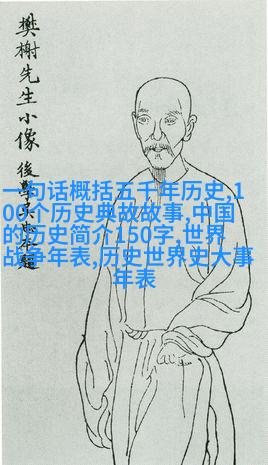 樊榭先生小像
後學
一句话概括五千年历史,1
00个历史典故故事,中国
的历史简介150字,世界
战争年表,历史世界史大事
年表